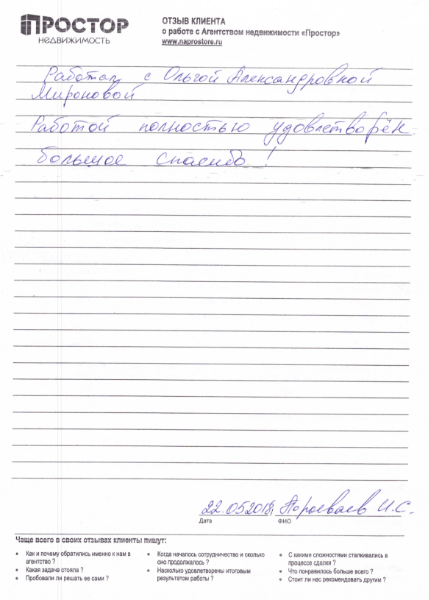 ПРОСТОР
НЕДВИЖИМОСТЬ
ОТЗЫВ КЛИЕНТА
о работе с Агентством недвижимости «Простор»
www.naprostore.ru
Работал с Ольгой Александровной
Мироновой
Работой полностью удовлетворён
Большое спасибо!
22.05.2018г. И.С.
Дата ФИО
Чаще всего в своих отзывах клиенты пишут:
• Как и почему обратились именно к нам в агентство ?
• Какая задача стояла ?
• Пробовали ли решать ее сами ?
• Когда началось сотрудничество и сколько оно продолжалось ?
• Насколько удовлетворены итоговым результатом работы ?
• С какими сложностями сталкивались в процессе сделки ?
• Что понравилось больше всего ?
• Стоит ли нас рекомендовать другим ?